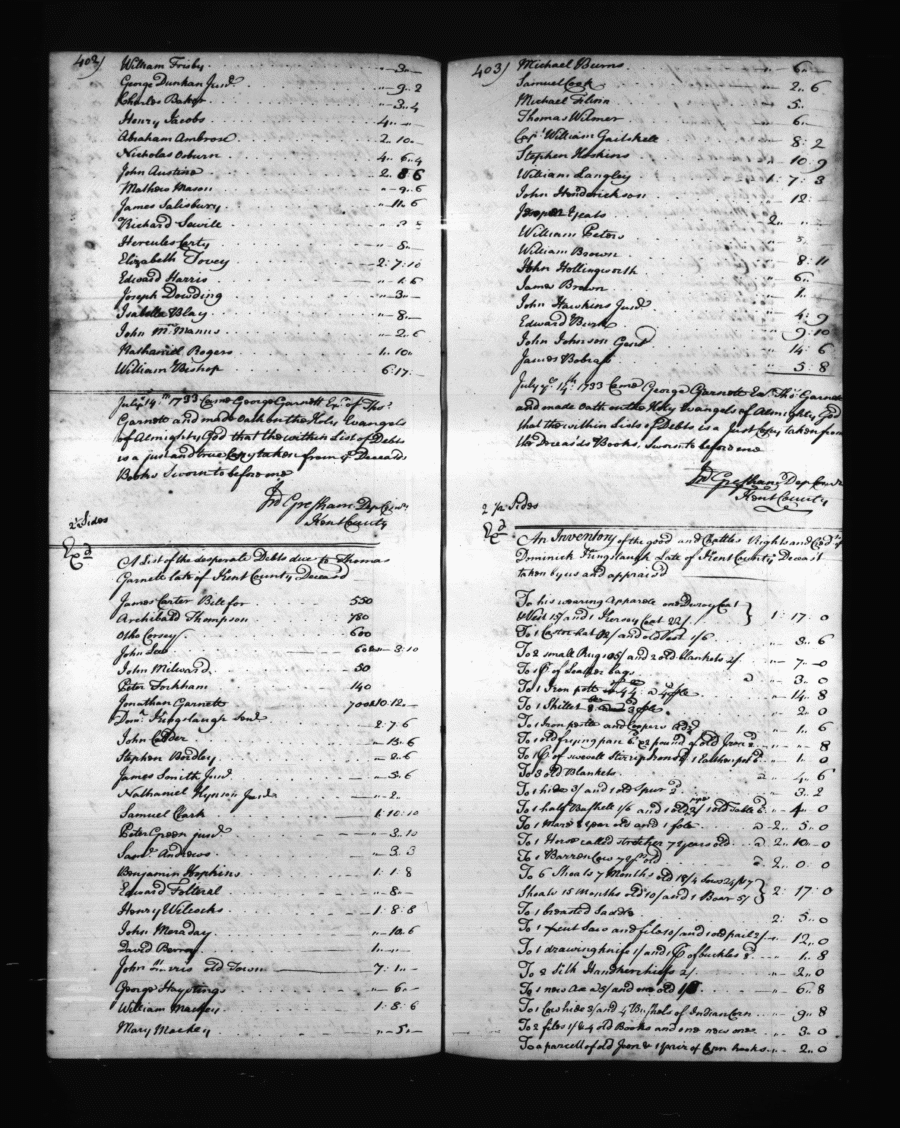 402)
William Frisby - " 3 " -
George Dunkan Jun.r - " 9 " 2
Charles Baker - " 3 " 4
Henry Jacobs 4 " - " -
Abraham Ambrose 2 " 10 " -
Nicholas Osburn 4 " 6 " 4
John Austine 2 " 8 " 6
Mathew Mason - " 9 " 6
James Salisbury - " 11 " 6
Richard Sewile
Hercules Carty " 8 " -
Elizabeth Tovey 2 : 7 : 10
Edward Harris - " 1 " 6
Joseph Dowding - " 3 " -
Isabella Blay " 8 " -
John McManus - " 2 " 6
Nathaniel Rogers 1 " 10 " -
William Bishop 6 : 17 : -
July 14.th 1733 Came George Garnett Ex.r of Tho.s
Garnett and made Oath on the Holy Evangels
of Almighty God that the within List of Debts
is a just and true Copy taken from y.e Deceads
Books Sworn to before me
Jno Gresham Dep Com.ry
Kent County
2 1/2 Sides
Ex.d
A List of the desperate Debts due to Thomas
Garnett late of Kent County Deceasd
James Carter Bill for 550
Archibald Thompson 780
Otho Corsey 600
John Lee
John Milward 50
Peter Forkham 140
Jonathan Garnett 700 10 : 12 " -
Dom. Kingslaugh 2 : 7 " 6
John Calder - " 13 " 6
Stephen Bordley - " 2 " 6
James Smith Jun.r - " 5 " 6
Nathaniel Hynson Jun.r - " 2 " -
Samuel Clark 1 : 10 : 10
Peter Green jun.r - " 3 " 10
Sam.l Andrews " 3 " 3
Benjamin Hopkins 1 : 1 : 8
Edward - " 8 " -
Henry Wilcocks 1 : 8 : 8
John Meraday - " 10 " 6
David 1 " - " -
John old Town 7 : 1 " -
George Hastings - " 6 " -
William Mackey 1 : 8 : 6
Mary Mackey - " 5 " -
403)
Michael Burns " 6 " -
Samuel Cook " 2 " 6
Michael " 5 "
Thomas Wilmer " 6 " -
William Gaitskell " 8 : 2
Stephen Hoskins " 10 " 9
William Langley 1 : 7 : 3
John Henderickson 12 : -
Jasper Yeats 2 " "
William Peters
William Brown 8 : 11
John Hollingworth " 6 "
James Brown " 1 " -
John Hawkins Jun.r 4 : 9
Edward 9 : 10
John Johnson Gent 14 : 6
James 5 : 8
July y.e 14.th 1733 Came George Garnett Ex.r Tho.s Garnett
and made Oath on the Holy Evangels of Almighty God
that the within Lists of Debts is a Just Copy taken from
the Deceasds Books. Sworn to before me
Jno Gresham Dep Com.ry
Kent County
2 1/2 Sides
Ex.d
An Inventory of the good and Chattles Rights and Cred.ts of
Dominick Kingslaugh Late of Kent County Deceast
taken by us and appraisd
To his wearing Apparele one Coat
& Vest 15/ and 1 Kersey Coat 22/ } 1 : 17 : 0
To 1 Castor hat and old Vest 1/6 " 3 " 6
To 2 small Rugs 5/ and 2 old blankets 2/ " 7 " 0
To 1 p.r of Leather bags a " 3 " 0
To 1 Iron pott " 14 " 8
To 1 Skillet " 2 " 0
To 1 Iron pestle and Coopers Adz " 1 " 6
To 1 old frying pan & pound of old Iron " " 8
To 1 p.r of Stirrip Irons & 1 Earthen pot " 1 " 0
To 3 old Blankets a " 4 " 6
To 1 hide 3/ and 1 old Spur 2.d " 3 " 2
To 1 half Bushell 1/6 and 1 old 1 old Table " 4 " 0
To 1 Mare 8 year old and 1 fole a 2 " 5 " 0
To 1 Horse called stretcher 7 years old a 2 " 10 " 0
To 1 Barren Cow 7 y.rs old a 2 " 0 " 0
To 6 Shoats 7 Months old 18/ 4 Sows 24/
Shoats 15 months old 10/ and 1 Boar 5/ } 2 : 17 : 0
To 1 breasted Saddle 2 : 5 " 0
To 1 Saw and files and 1 old pail 2/ " 12 " 0
To 1 drawing knife 1/ and 1 p.r of buckles 8.d " 1 " 8
To 2 Silk Handkerchiefs 2/ " 2 " 0
To 1 new Ax 5/ and one old " 6 " 8
To 1 Cow hide 3/ and 4 Bushels of Indian Corn " 9 " 8
To 2 files 1/ & 4 old Books and one new one " 3 " 0
To a parcell of old Iron & 1 pair of hooks " 2 " 0